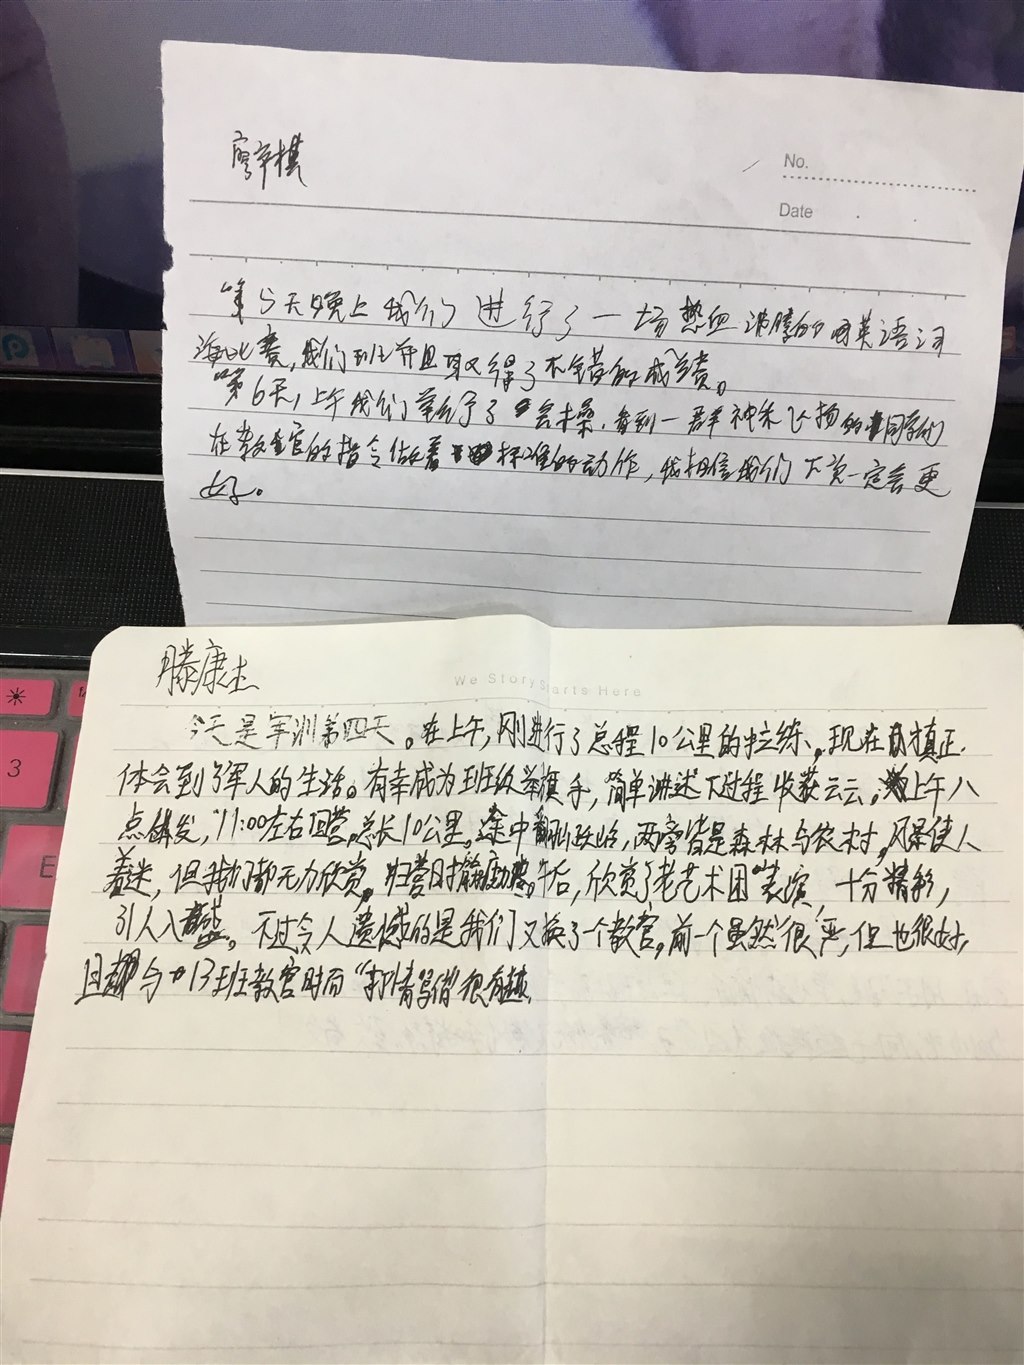 廖梓棋
No.
Date
第5天晚上我们进行了一场热血沸腾的英语词
海比赛,我们班并且取得了不错的成绩。
第6天,上午我们举行了会操,看到一群神采飞扬的同学们
在教官的指令做着标准的动作,我相信我们下次一定会更
好。
滕康杰
We Story Starts Here
今天是军训第四天。在上午,刚进行了总程10公里的拉练,现在才真正
体会到了军人的生活。有幸成为班级举旗手,简单讲述下过程收获云云。上午八
点出发,11:00左右回营,总长10公里。途中翻山跃岭,两旁皆是森林与农村,风景使人
着迷,但我们都无力欣赏,归营时。午后,欣赏了老艺术团表演,十分精彩,
引人入胜。不过令人遗憾的是我们又换了个教官,前一个虽然很严,但也很好,
且与13班教官时而“打情骂俏”很有趣.
3
E